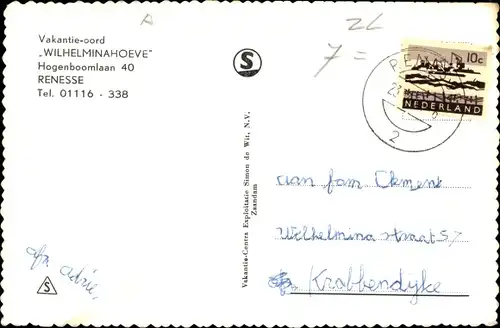 A
ZL
7 =
Vakantie-oord
„WILHELMINAHOEVE"
Hogenboomlaan 40
RENESSE
Tel. 01116 - 338
S
10c
NEDERLAND
2
Vakantie-Centra Exploitatie Simon de Wit, N.V.
Zaandam
aan fam Clement
Wilhelminastraat 57
Krabbendijke
afz Adrie,
S